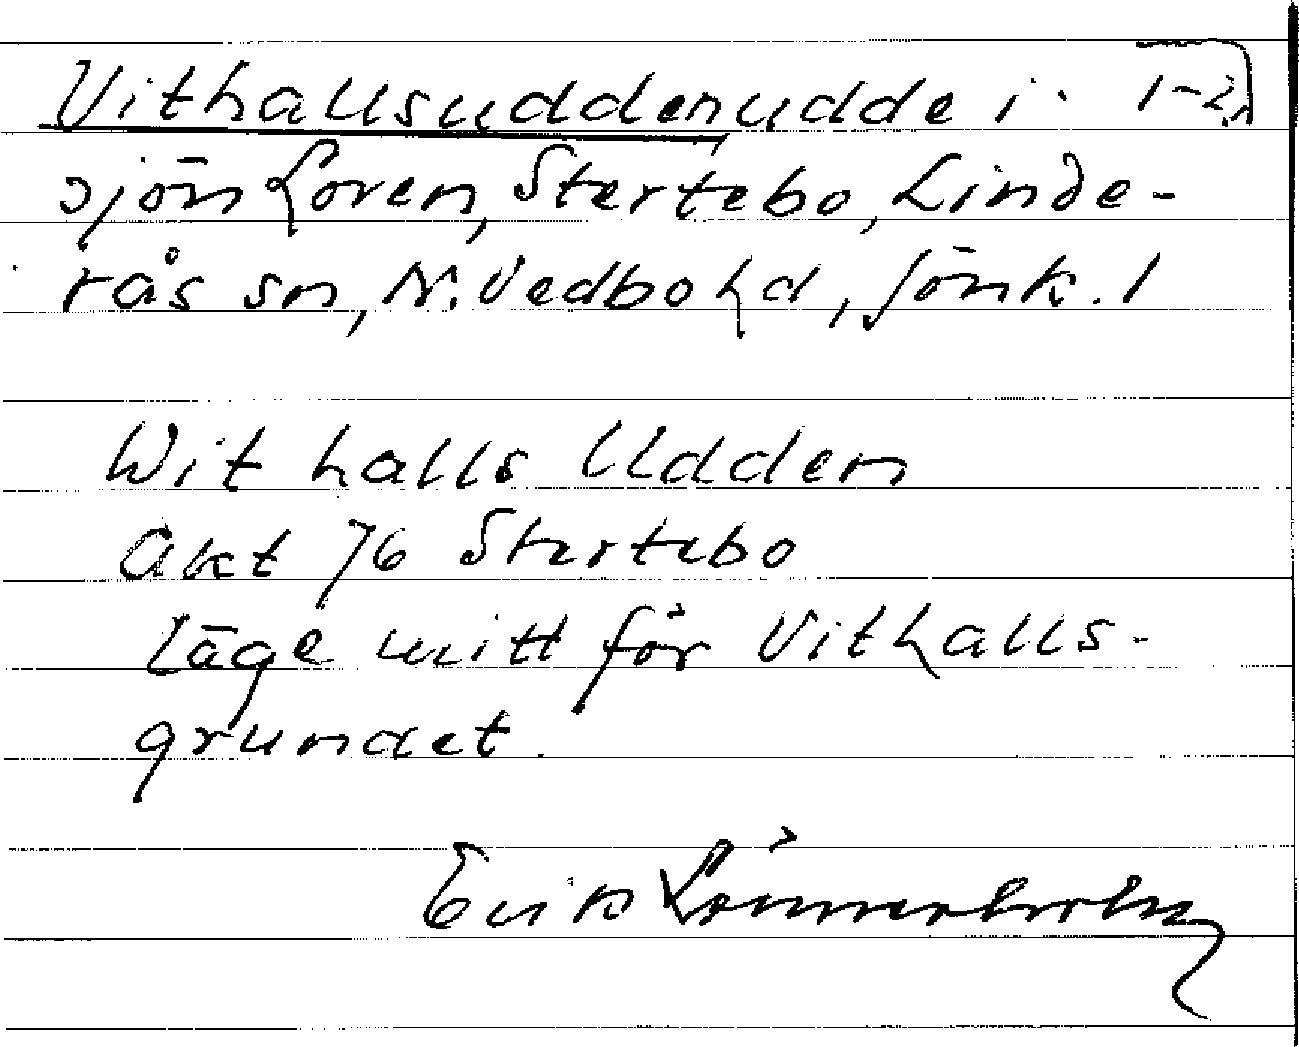 Vithallsudden udde i 1-2
sjön Loren, Stertebo, Linde-
rås sn, N. Vedbo hd, Jönk. l
Wit halls Udden
Akt 76 Stertebo
Läge mitt för Vithalls-
grundet.
Erik Lönnerholm